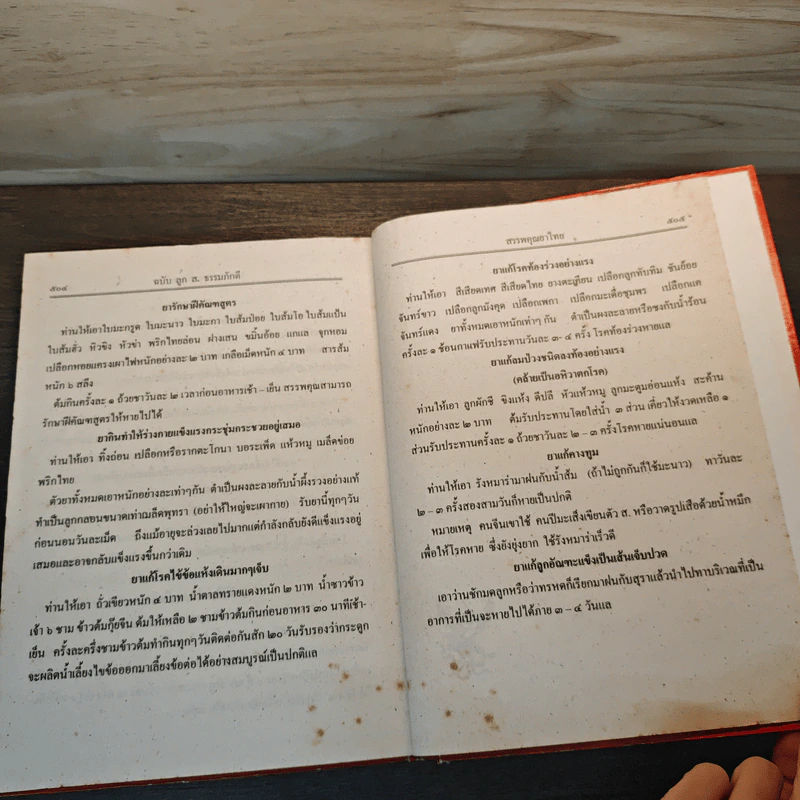 ๕๐๔ ฉบับ ลูก ส. ธรรมภักดี
ยารักษาฝีคัณฑสูตร
ท่านให้เอาใบมะกรูด ใบมะนาว ใบมะกา ใบส้มป่อย ใบส้มโอ ใบส้มแป้น
ใบส้มฮั่ว หัวขิง หัวข่า พริกไทยล่อน ฝางเสน ขมิ้นอ้อย แกแล จุกหอม
เปลือกหอยแครงเผาไฟหนักอย่างละ ๒ บาท เกลือเม็ดหนัก ๔ บาท สารส้ม
หนัก ๖ สลึง
ต้มกินครั้งละ ๑ ถ้วยชาวันละ ๒ เวลาก่อนอาหารเช้า – เย็น สรรพคุณสามารถ
รักษาฝีคัณฑสูตรให้หายไปได้
ยากินทำให้ร่างกายแข็งแรงกระชุ่มกระชวยอยู่เสมอ
ท่านให้เอา ทิ้งถ่อน เปลือกหรือรากตะโกนา บอระเพ็ด แห้วหมู เมล็ดข่อย
พริกไทย
ตัวยาทั้งหมดเอาหนักอย่างละเท่าๆกัน ตำเป็นผงละลายกับน้ำผึ้งรวงอย่างแท้
ทำเป็นลูกกลอนขนาดเท่าฌล็ดพุทรา (อย่าให้ใหญ่จะเผากาย) รับยานี้ทุกๆวัน
ก่อนนอนวันละเม็ด ถึงแม้อายุจะล่วงเลยไปมากแต่กำลังกลับยังดีแข็งแรงอยู่
เสมอและอาจกลับแข็งแรงขึ้นกว่าเดิม
ยาแก้โรคไข้ข้อแห้งเดินมากๆเจ็บ
ท่านให้เอา ถั่วเขียวหนัก ๔ บาท น้ำตาลทรายแดงหนัก ๒ บาท น้ำซาวข้าว
เจ้า ๖ ชาม ข้าวต้มกุ๊ยจีน ต้มให้เหลือ ๒ ชามข้าวต้มกินก่อนอาหาร ๓๐ นาทีเช้า-
เย็น ครั้งละครึ่งชามข้าวต้มทำกินทุกๆวันติดต่อกันสัก ๒๐ วันรับรองว่ากระดูก
จะผลิตน้ำเลี้ยงไขข้อออกมาเลี้ยงข้อต่อได้อย่างสมบูรณ์เป็นปกติแล
สรรพคุณยาไทย ๕๐๕
ยาแก้โรคท้องร่วงอย่างแรง
ท่านให้เอา สีเสียดเทศ สีเสียดไทย ยางตะเคียน เปลือกลูกทับทิม ชันย้อย
จันทร์ขาว เปลือกลูกมังคุด เปลือกเพกา เปลือกมะเดื่อชุมพร เปลือกแค
จันทร์แดง ยาทั้งหมดเอาหนักเท่าๆ กัน ตำเป็นผงละลายหรือชงกับน้ำร้อน
ครั้งละ ๑ ช้อนกาแฟรับประทานวันละ ๓- ๔ ครั้ง โรคท้องร่วงหายแล
ยาแก้ลมป่วงชนิดลงท้องอย่างแรง
(คล้ายเป็นอหิวาตกโรค)
ท่านให้เอา ลูกผักชี ขิงแห้ง ดีปลี หัวแห้วหมู ลูกมะตูมอ่อนแห้ง สะค้าน
หนักอย่างละ ๒ บาท ต้มรับประทานโดยใส่น้ำ ๓ ส่วน เคี่ยวให้งวดเหลือ ๑
ส่วนรับประทานครั้งละ ๑ ถ้วยชาวันละ ๒ – ๓ ครั้งโรคหายแน่นอนแล
ยาแก้คางทูม
ท่านให้เอา รังหมาร่ามาฝนกับน้ำส้ม (ถ้าไม่ถูกกันก็ใช้มะนาว) ทาวันละ
๒ – ๓ ครั้งสองสามวันก็หายเป็นปกติ
หมายเหตุ คนจีนเขาใช้ คนปีมะเส็งเขียนตัว ส. หรือวาดรูปเสือด้วยน้ำหมึก
เพื่อให้โรคหาย ซึ่งยังยุ่งยาก ใช้รังหมาร่าเร็วดี
ยาแก้ลูกอัณฑะแข็งเป็นเส้นเจ็บปวด
เอาว่านชักมดลูกหรือว่าทรหดก็เรียกมาฝนกับสุราแล้วนำไปทาบริเวณที่เป็น
อาการที่เป็นจะหายไปได้ภาย ๓ – ๔ วันแล